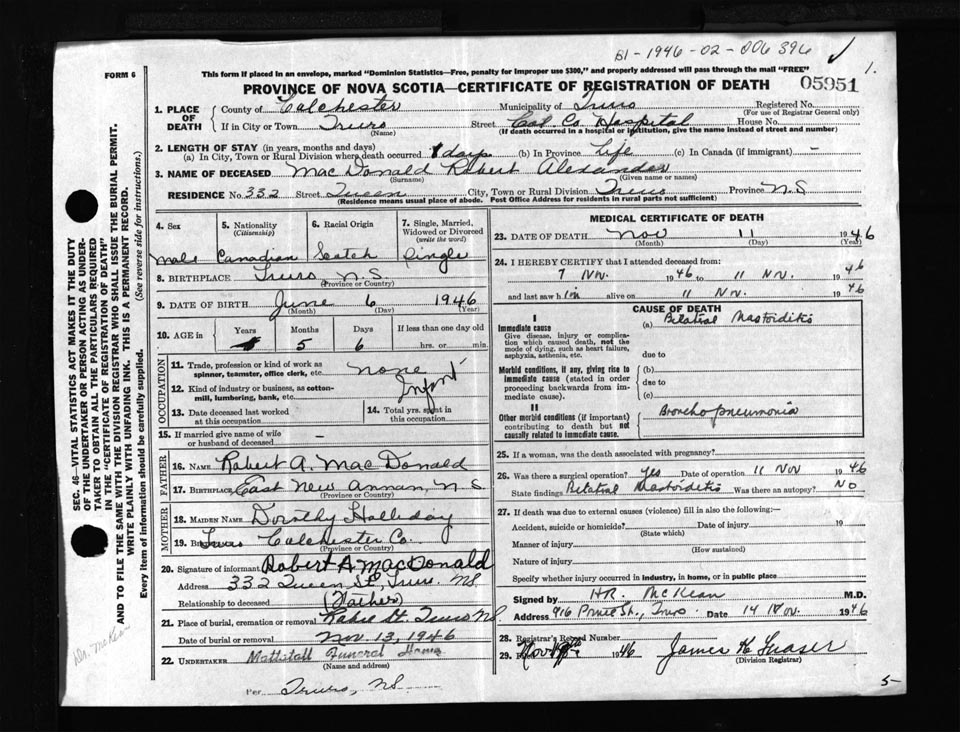 B1-1946-02-006396
1.
FORM 6
This form if placed in an envelope, marked "Dominion Statistics—Free, penalty for improper use $300," and properly addressed will pass through the mail "FREE"
PROVINCE OF NOVA SCOTIA—CERTIFICATE OF REGISTRATION OF DEATH
05951
1. PLACE OF DEATH County of Colchester Municipality of Truro Registered No.
(For use of Registrar General only)
If in City or Town Truro Street Col. Co. Hospital House No.
(Name) (If death occurred in a hospital or institution, give the name instead of street and number)
2. LENGTH OF STAY (in years, months and days)
(a) In City, Town or Rural Division where death occurred days (b) In Province Life (c) In Canada (if immigrant) -
3. NAME OF DECEASED MacDonald Robert Alexander
(Surname) (Given name or names)
RESIDENCE No. 332 Street Queen City, Town or Rural Division Truro Province N.S
(Residence means usual place of abode. Post Office Address for residents in rural parts not sufficient)
4. Sex
male
5. Nationality
(Citizenship)
Canadian
6. Racial Origin
Scotch
7. Single, Married, Widowed or Divorced
(write the word)
Single
8. BIRTHPLACE Truro N.S.
(Province or Country)
9. DATE OF BIRTH June 6 1946
(Month) (Day) (Year)
10. AGE in Years Months Days If less than one day old
5 6 hrs. or min.
OCCUPATION
11. Trade, profession or kind of work as spinner, teamster, office clerk, etc. none
12. Kind of industry or business, as cotton-mill, lumbering, bank, etc. Infant
13. Date deceased last worked at this occupation
14. Total yrs. spent in this occupation
15. If married give name of wife or husband of deceased -
FATHER
16. NAME Robert A. MacDonald
17. BIRTHPLACE East New Annan, N.S.
(Province or Country)
MOTHER
18. MAIDEN NAME Dorothy Halleday
19. Truro Colchester Co.
(Province or Country)
20. Signature of informant Robert A. MacDonald
Address 332 Queen St., Truro. NS
Relationship to deceased (Father)
21. Place of burial, cremation or removal St. Truro N.S.
Date of burial or removal Nov. 13, 1946
22. UNDERTAKER Mattatall Funeral Home
(Name and address)
Per Truro, NS
MEDICAL CERTIFICATE OF DEATH
23. DATE OF DEATH Nov 11 1946
(Month) (Day) (Year)
24. I HEREBY CERTIFY that I attended deceased from:
7 Nov. 1946 to 11 Nov. 1946
and last saw him alive on 11 Nov. 1946
CAUSE OF DEATH
I
Immediate cause
Give disease, injury or complication which caused death, not the mode of dying, such as heart failure, asphyxia, asthenia, etc.
(a) Bilatral Mastoiditis
due to
Morbid conditions, if any, giving rise to immediate cause (stated in order proceeding backwards from immediate cause).
(b)
due to
(c)
II
Other morbid conditions (if important) contributing to death but not causally related to immediate cause.
Bronchopneumonia
25. If a woman, was the death associated with pregnancy?
26. Was there a surgical operation? Yes Date of operation 11 Nov 1946
State findings Bilatral Mastoiditis Was there an autopsy? No
27. If death was due to external causes (violence) fill in also the following:—
Accident, suicide or homicide? Date of injury 19
(State which)
Manner of injury
(How sustained)
Nature of injury
Specify whether injury occurred in industry, in home, or in public place
Signed by HR. McKean M.D.
Address 916 Prince St., Truro Date 14 Nov. 1946
28. Registrar's Record Number
29. Nov 1946 James K Fraser
(Division Registrar)
5-
SEC. 46—VITAL STATISTICS ACT MAKES IT THE DUTY
OF THE UNDERTAKER OR PERSON ACTING AS UNDER-
TAKER TO OBTAIN ALL THE PARTICULARS REQUIRED
IN THE "CERTIFICATE OF REGISTRATION OF DEATH"
AND TO FILE THE SAME WITH THE DIVISION REGISTRAR WHO SHALL ISSUE THE BURIAL PERMIT.
WRITE PLAINLY WITH UNFADING INK. THIS IS A PERMANENT RECORD.
Every item of information should be carefully supplied. (See reverse side for instructions.)
Dr. McKean